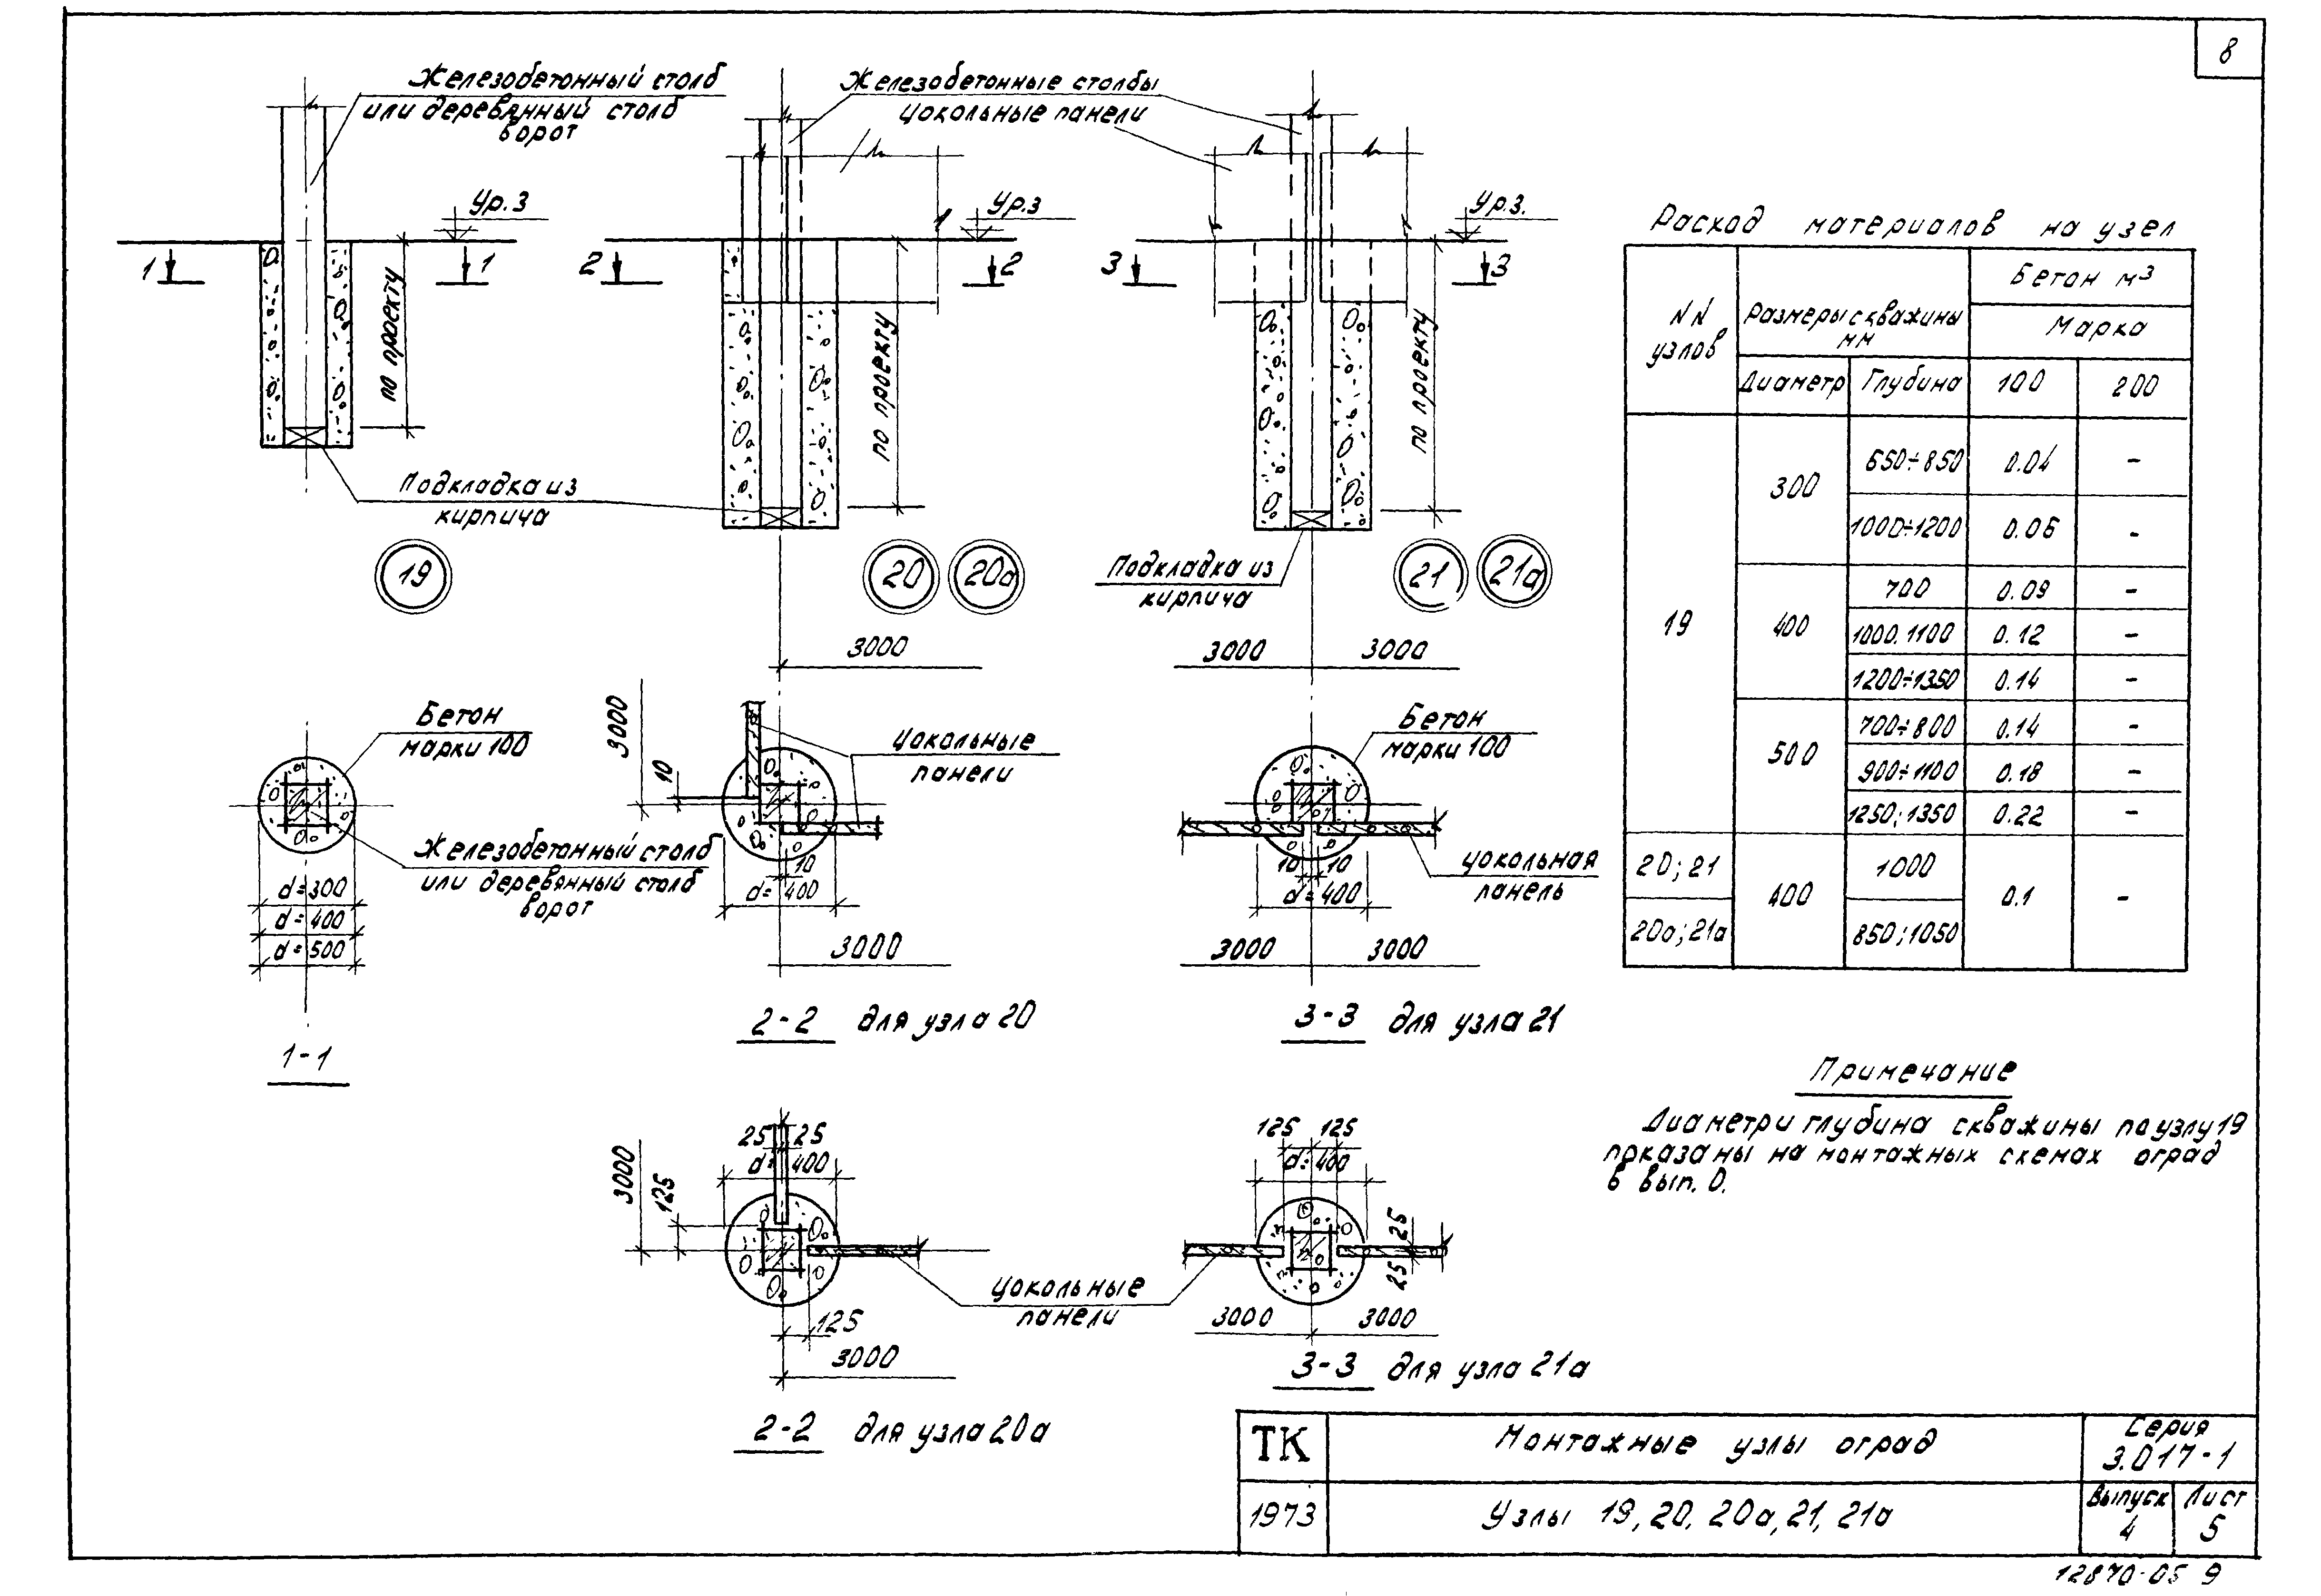 8
Железобетонный столб
или деревянный столб
ворот
Железобетонные столбы
цокольные панели
Ур.з
Ур.з
Ур.з.
1 1
2 2
3 3
1
по проекту
по проекту
по проекту
Подкладка из
кирпича
Подкладка из
кирпича
19
20 20а
21 21а
3000
3000 3000
Бетон
марки 100
Железобетонный столб
или деревянный столб
ворот
d=300
d=400
d=500
1-1
3000
10
цокольные
панели
10
d=400
3000
2-2 для узла 20
Бетон
марки 100
цокольная
панель
10 10
d=400
3000 3000
3-3 для узла 21
25 25
d=400
3000
125
125
3000
2-2 для узла 20а
цокольные
панели
125 125
d=400
25
25
3000 3000
3-3 для узла 21а
Расход материалов на узел
NN
узлов
Размеры скважины
мм
Бетон м3
Марка
Диаметр Глубина 100 200
19
300 650÷850 0.04 -
1000÷1200 0.06 -
400 700 0.09 -
1000.1100 0.12 -
1200÷1350 0.14 -
500 700÷800 0.14 -
900÷1100 0.18 -
1250;1350 0.22 -
20;21 400 1000 0.1 -
20а;21а 850;1050
Примечание
Диаметр и глубина скважины по узлу 19
показаны на монтажных схемах оград
в вып. 0.
ТК Монтажные узлы оград Серия
3.017-1
1973 Узлы 19, 20, 20а, 21, 21а
Выпуск Лист
4 5
12870-05 9